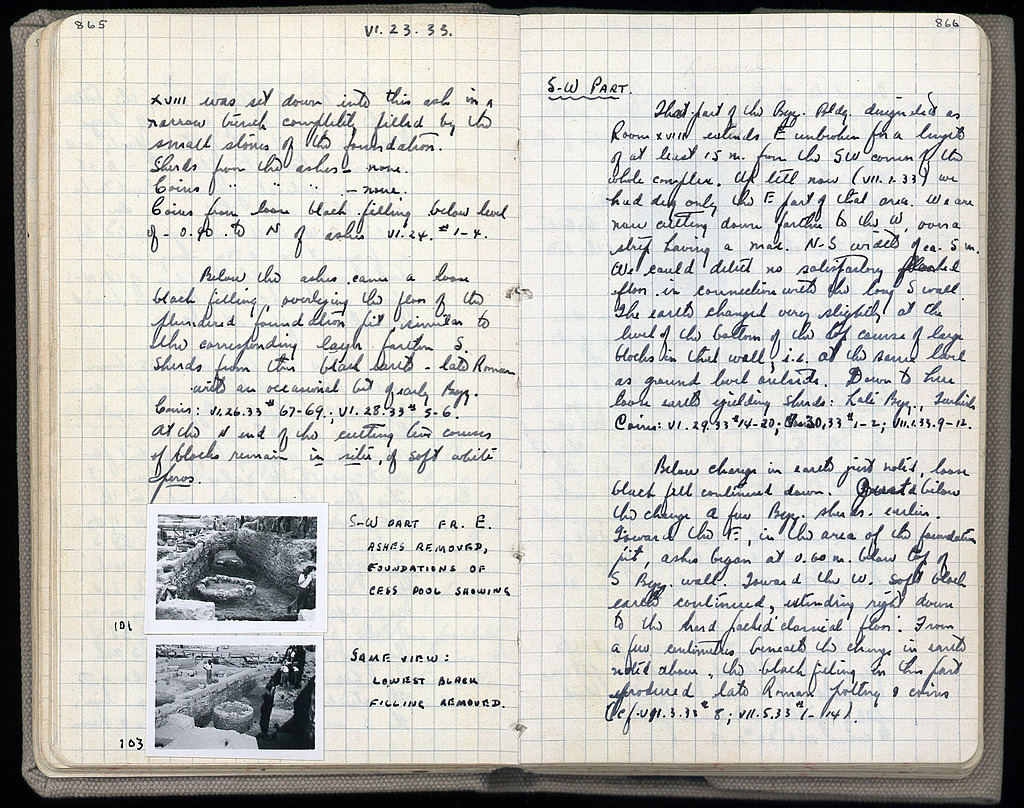 865
VI.23.33.
XVIII was set down into this ash in a
narrow trench completely filled by the
small stones of the foundation.
Sherds from the ashes - none.
Coins " " " - none.
Coins from loose black filling below level
of - 0.90 to N of ashes VI.24. #1-4.
Below the ashes came a loose
black filling, overlying the floor of the
plundered foundation pit, similar to
the corresponding layer farther S.
Sherds from this black earth - late Roman
with an occasional bit of early Byz.
Coins: VI.26.33 #67-69; VI.28.33 #5-6.
At the N end of the cutting two courses
of blocks remain in situ, of soft white
poros.
S-W PART FR. E.
ASHES REMOVED,
FOUNDATIONS OF
CESS POOL SHOWING
101
SAME VIEW:
LOWEST BLACK
FILLING REMOVED.
103
866
S-W PART.
That part of the Byz. Bldg. designated as
Room XVIII extends E unbroken for a length
of at least 15 m. from the SW corner of the
whole complex. Up till now (VII.1.33) we
had dug only the E part of that area. We are
now cutting down farther to the W, over a
strip having a max. N-S width of ca. 5 m.
We could detect no satisfactory
floor in connection with the long S wall.
The earth changed very slightly at the
level of the bottom of the top course of large
blocks in that wall, i.e. at the same level
as ground level outside. Down to here
loose earth yielding sherds: Late Byz., Turkish
Coins: VI.29.33 #14-20; 30.33 #1-2; VII.1.33.9-12.
Below change in earth just noted, loose
black fill continued down. below
the change a few Byz. sherds. earlier.
Toward the E, in the area of the foundation
pit, ashes began at 0.60 m. below top of
S Byz. wall. Toward the W. soft black
earth continued, extending right down
to the hard packed 'classical floor'. From
a few centimetres beneath the change in earth
noted above, the black filling in this part
produced late Roman pottery & coins
(cf. VII.3.33 #8; VII.5.33 #1-14).